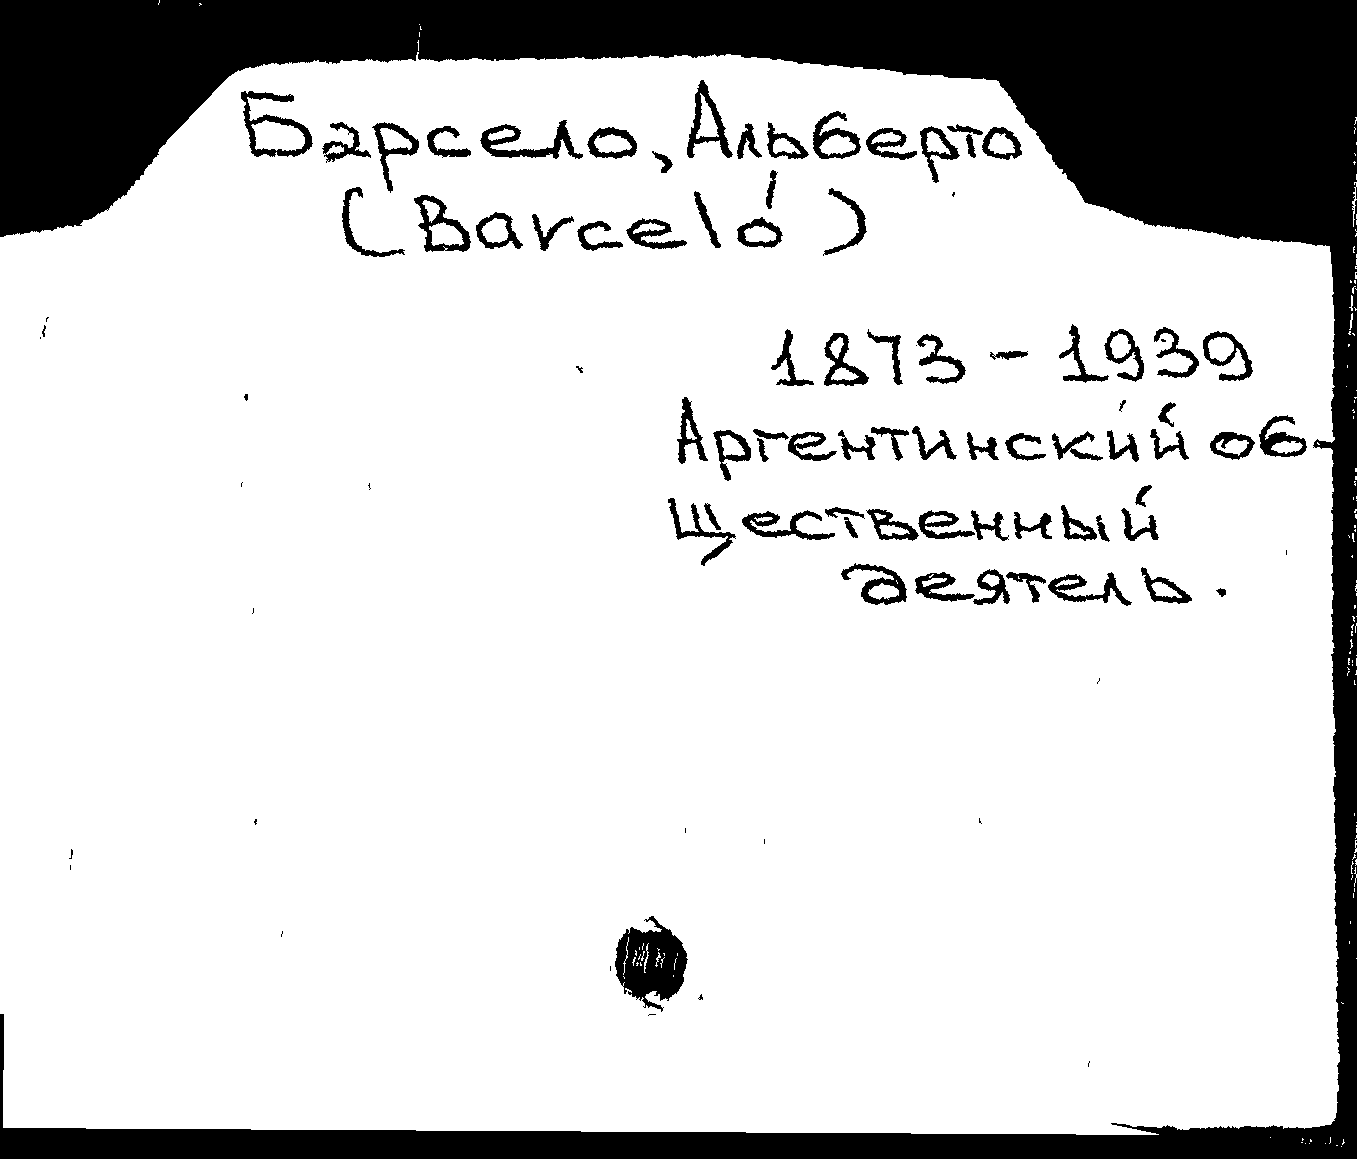 Барсело, Альберто
(Barceló)
1873 - 1939
Аргентинский об-
щественный
деятель.